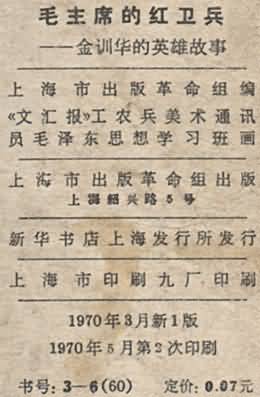 毛主席的红卫兵
——金训华的英雄故事
上海市出版革命组编
《文汇报》工农兵美术通讯
员毛泽东思想学习班画
上海市出版革命组出版
上海绍兴路5号
新华书店上海发行所发行
上海市印刷九厂印刷
1970年3月新1版
1970年5月第2次印刷
书号:3—6(60) 定价:0.07元